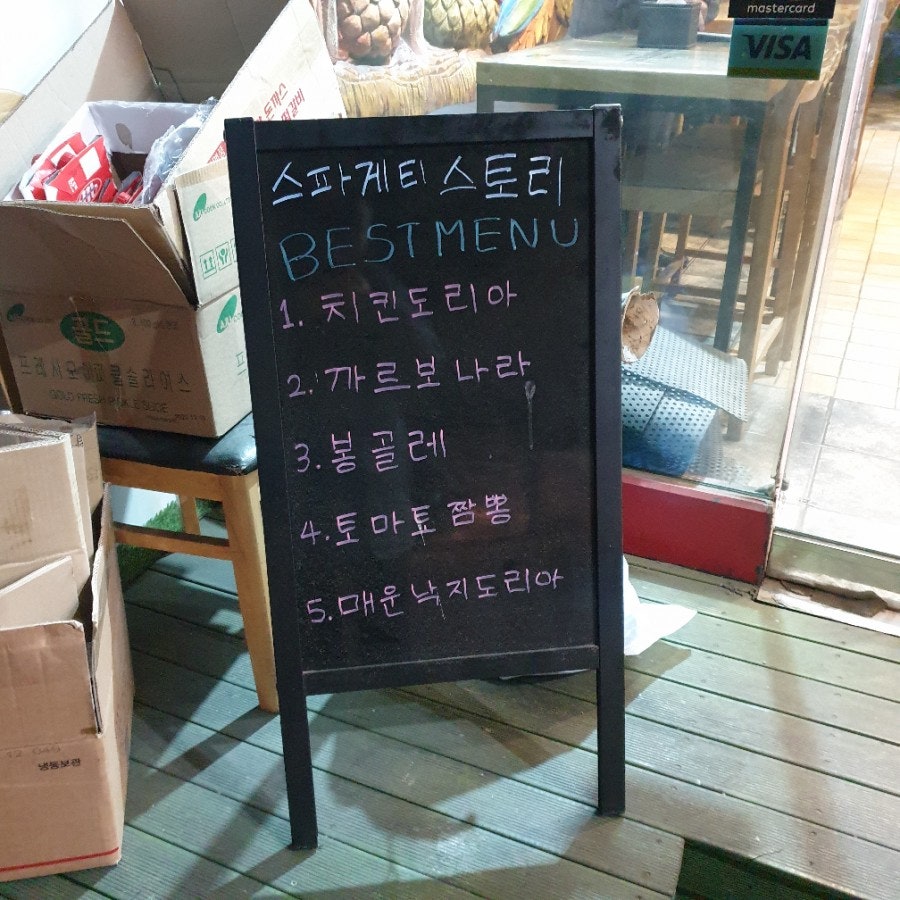 mastercard
VISA
스파게티 스토리
BEST MENU
1. 치킨도리아
2. 까르보나라
3. 봉골레
4. 토마토짬뽕
5. 매운낙지도리아
골드
GOLD FRESH PICKLE SLICE
냉동보관